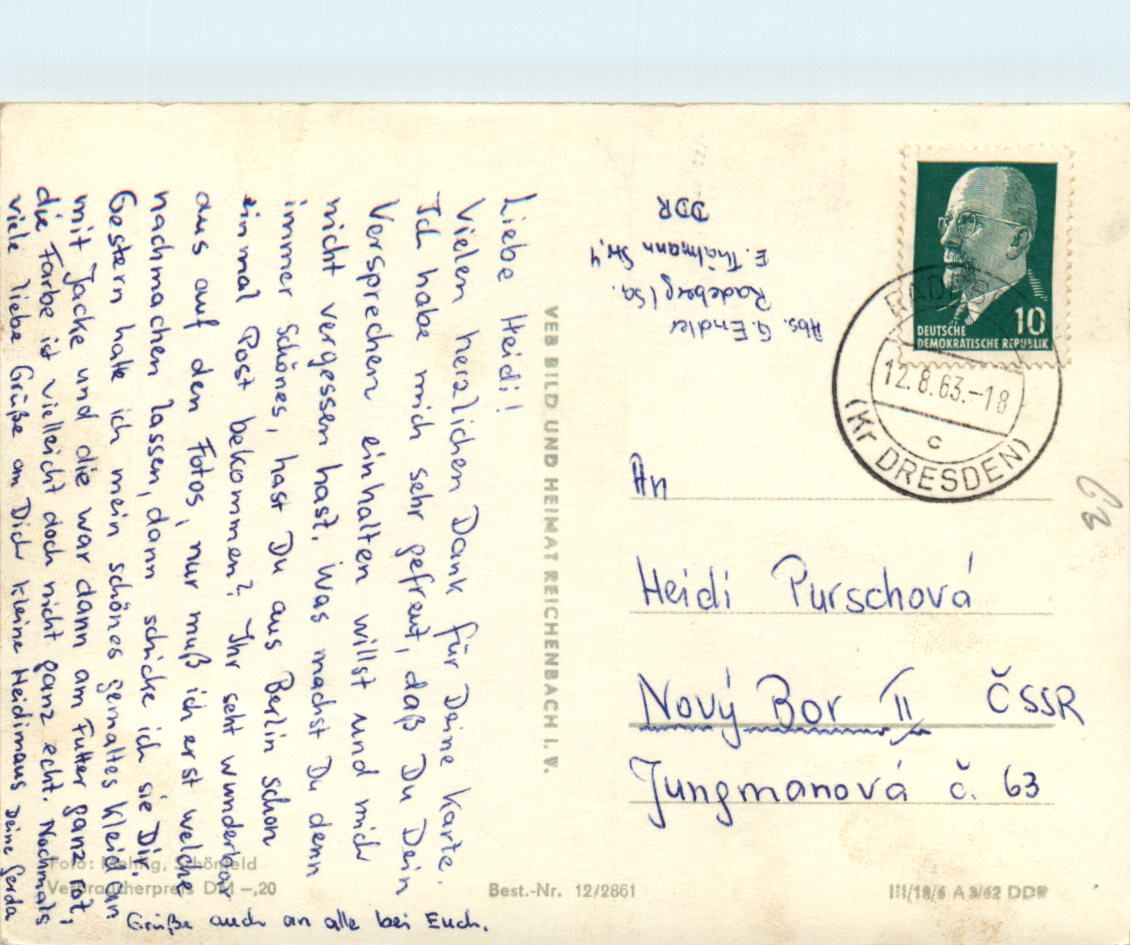 Liebe Heidi!
Vielen herzlichen Dank für Deine Karte.
Ich habe mich sehr gefreut, daß Du Dein
Versprechen einhalten willst und mich
nicht vergessen hast. Was machst Du denn
immer schönes, hast Du aus Berlin schon
einmal Post bekommen? Ihr seht wunderbar
aus auf den Fotos, nur muß ich erst welche
nachmachen lassen, dann schicke ich sie Dir.
Gestern hatte ich mein schönes gemaltes Kleid an
mit Jacke und die war dann am Futter ganz rot,
die Farbe ist vielleicht doch nicht ganz echt. Nochmals
viele liebe Grüße an Dich kleine Heidimaus Deine Gerda
Grüße auch an alle bei Euch.
VEB BILD UND HEIMAT REICHENBACH I. V.
Abs. G. Endler
Radeberg/Sa.
E. Thälmann Str. 4
DDR
10
DEUTSCHE
DEMOKRATISCHE REPUBLIK
12.8.63.-18
c
(Kr DRESDEN)
An
Heidi Purschová
Nový Bor II ČSSR
Jungmanová č. 63
Foto: Schönfeld
Verbraucherpreis DM -,20
Best.-Nr. 12/2861
III/18/6 A 3/62 DDR